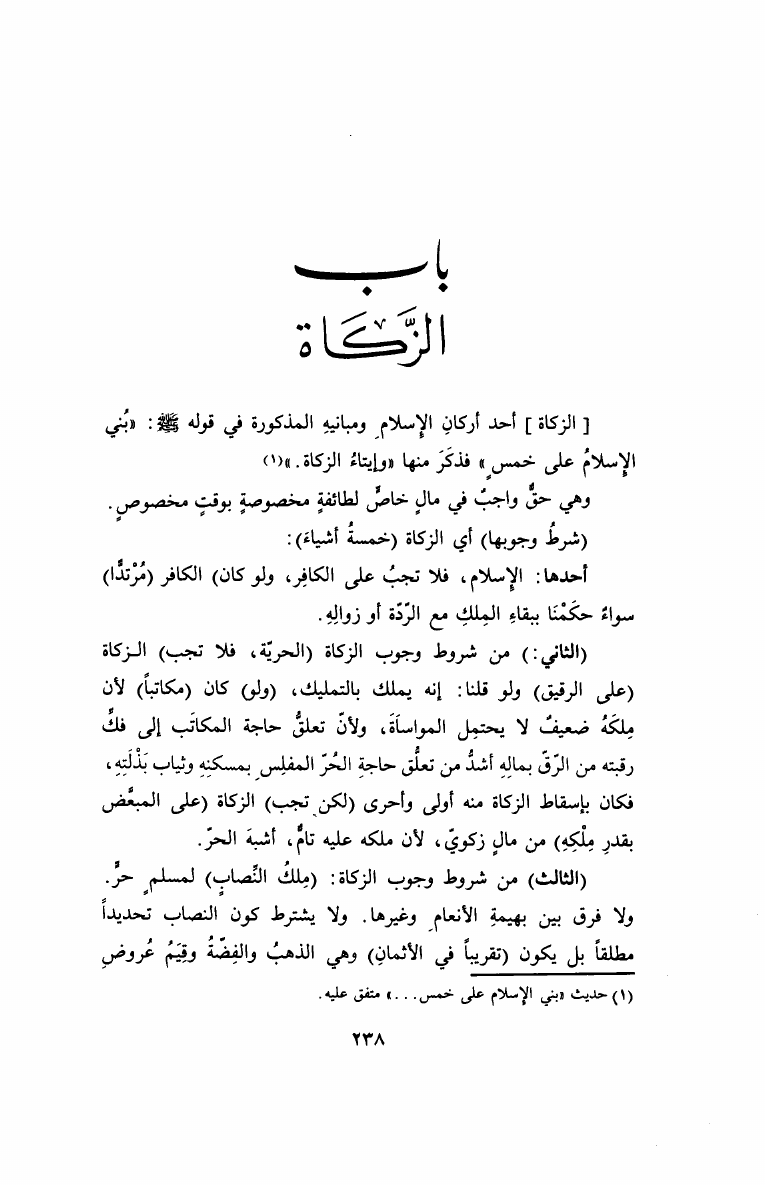 باب
الزَّكَاة
[ الزكاة ] أحد أركانِ الإسلامِ ومبانيهِ المذكورة في قوله ﷺ: «بُني
الإسلامُ على خمسٍ» فذكَرَ منها «وإيتاءُ الزكاة.»(١)
وهي حقٌّ واجبٌ في مالٍ خاصٍّ لطائفةٍ مخصوصةٍ بوقتٍ مخصوصٍ.
(شرطُ وجوبها) أي الزكاة (خمسةُ أشياءَ):
أحدها: الإسلام، فلا تجبُ على الكافِر، ولو كان) الكافر (مُرْتدًّا)
سواءً حكَمْنَا ببقاءِ المِلكِ مع الرّدّة أو زوالِهِ.
(الثاني:) من شروط وجوب الزكاة (الحريّة، فلا تجب) الـزكاة
(على الرقيق) ولو قلنا: إنه يملك بالتمليك، (ولو) كان (مكاتباً) لأن
مِلكَهُ ضعيفٌ لا يحتمِل المواساَةَ، ولأنّ تعلقُّ حاجة المكاتَب إلى فكِّ
رقبته من الرّقّ بمالِهِ أشدُّ من تعلُّق حاجةِ الحُرّ المفلِسِ بمسكنِهِ وثياب بَذْلَتِهِ،
فكان بإسقاط الزكاة منه أولى وأحرى (لكن تجب) الزكاة (على المبعَّض
بقدرِ مِلْكِهِ) من مالٍ زكويّ، لأن ملكه عليه تامٌّ، أشبهَ الحرّ.
(الثالث) من شروط وجوب الزكاة: (مِلكُ النِّصابِ) لمسلمٍ حرٍّ.
ولا فرق بين بهيمةِ الأنعامِ وغيرها. ولا يشترط كون النصاب تحديداً
مطلقاً بل يكون (تقريباً في الأثمانِ) وهي الذهبُ والفِضّةُ وقِيَمُ عُروضِ
(١) حديث «بني الإسلام على خمس...» متفق عليه.
٢٣٨